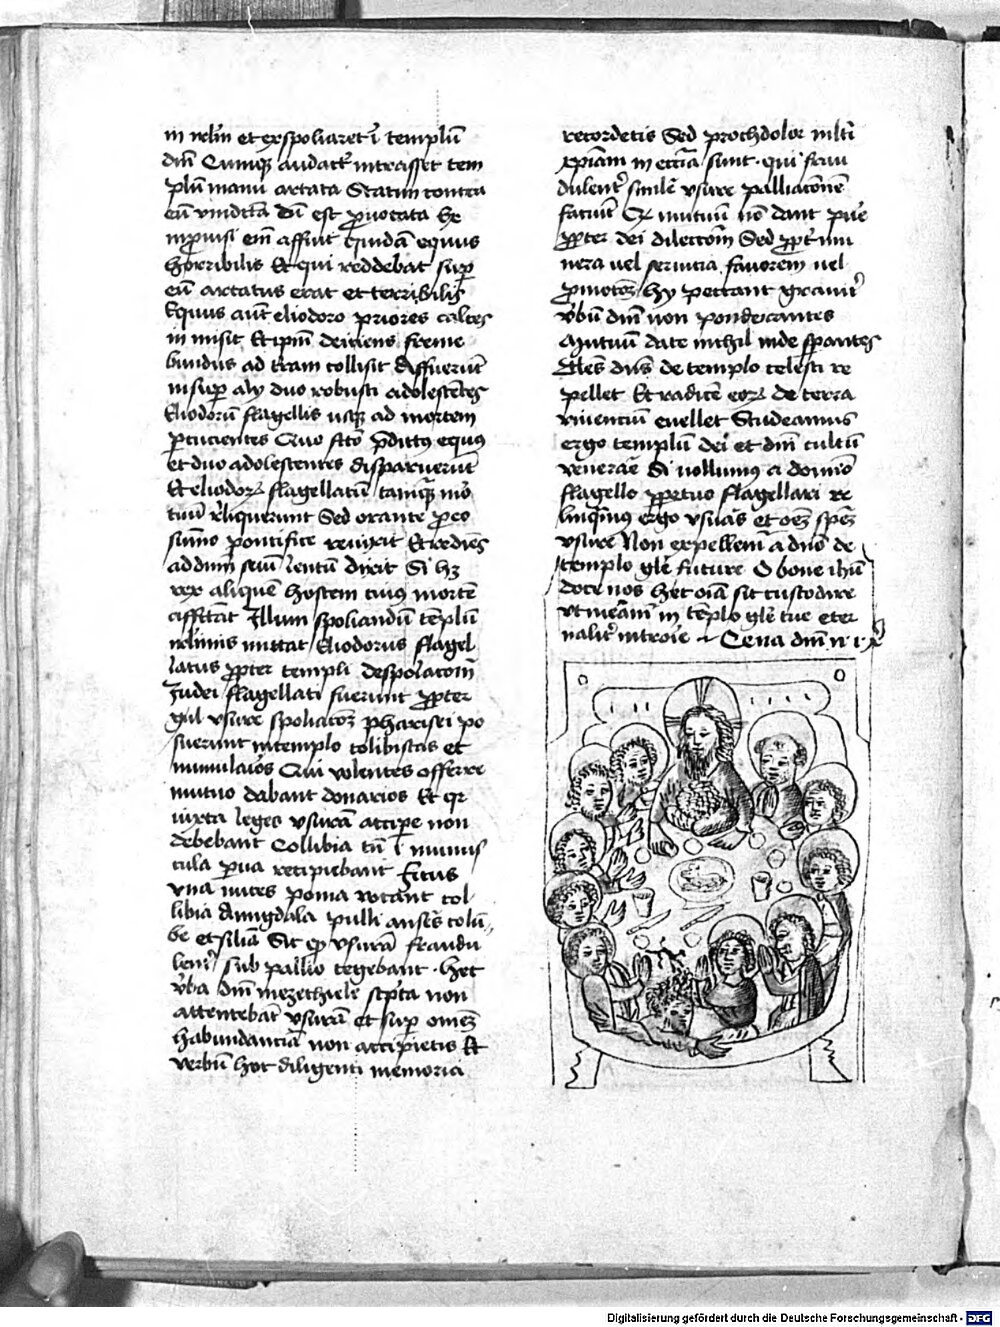 in irl'm et exspoliaret i templū
dn̄i Cumq; audact' intrasset tem
plū manu artata Statim contra
eū vindc̄ta dn̄i est ꝓuocata Ex
inprouisi em̄ affuit quidā equus
horribilis Et qui reddebat suꝑ
eū artatus erat et terribilis
Equus aūt eliodoro priores calces
in misit Et ipm̄ deiciens freme
bundus ad t'ram collisit Affuerūt
insuꝑ alij duo robusti adolescētes
Eliodorū flagellis usq; ad mortem
ꝑcucientes Quo fc̄to p̄dictus equus
et duo adolescentes disparuerūt
Et eliodorꝝ flagellatū tamq̄ mo
tuū reliquerunt Sed orante ꝓ eo
sūmo pontifice reuixit Et rediēs
ad dnm̄ suū rentū dixit Si h3
rex aliquē hostem cuiꝯ mortē
affc̄tat Illum spoliandū templū
irl'imis mittat Eliodorus flagel
latus ꝓpter templi despolacōm̄
Judei flagellati fuerunt ꝓpter
qui vsure spoliacōꝫ pharisei po
suerunt in templo colibistas et
numulaiōs Qui volentes offerre
mutuo dabant donarios Et qr
iuxta leges vsurā accipe non
debebant Collibia tn̄ i munus
cula ꝑua recipiebant Ficus
vua nuces poma vocant col
libia Amigdala pulli anseēs colū
be et silia Sic qꝫ vsurā fraudu
lent' sub pallio tegebant · hec
v'ba dn̄i in ezechiele sc̄pta non
attentebāt vsurā et suꝑ omeꝫ
habundanciā non accipietis Et
verbū hoc diligenti memoria
recordetis Sed prochdolor mlti
xp̄iani in ecc̄ia sunt · qui frau
dulent' simile vsure palliacōnē
faciūt Qr mutuū nō dant pure
ꝓpter dei dileccōm Sed ꝓpt' mu
nera uel seruicia fauorem uel
ꝓmotōꝫ hy peccant grauit'
v'bū dn̄i non ponderantes
Mutuū date nichil inde sperantes
Illos dn̄s de templo celesti re
pellet Et radicē eorꝝ de terra
viuenciū euellet Studeamus
ergo templū dei et dn̄i cultū
venerāe Si nollumꝯ a domino
flagello ꝑpetuo flagellari re
linqm̄ꝯ ergo vsurās et oēꝫ speꝫ
vsure Non expellem̄ a dn̄o de
templo gl'e future O bone ihū
doce nos hec oīa sic custodire
vt meām̄ in tēplo gl'e tue eter
nalit' introire Cena dn̄i